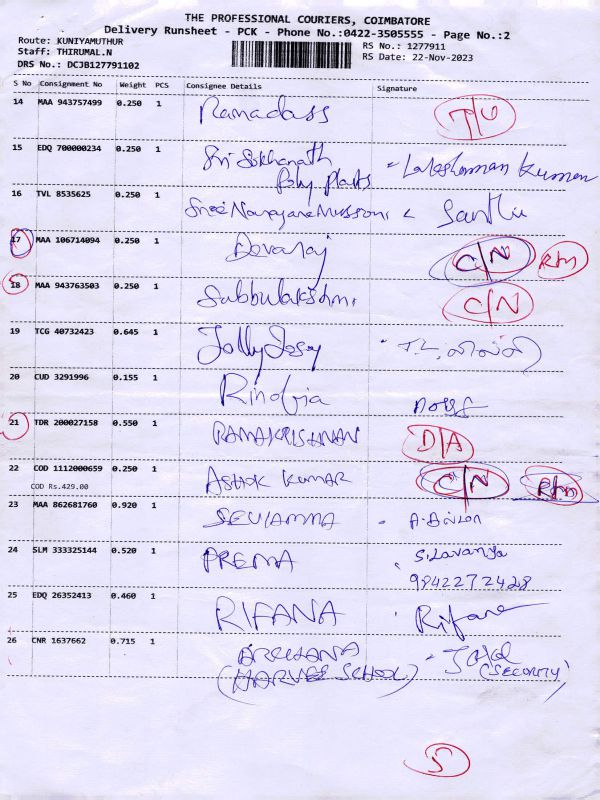 THE PROFESSIONAL COURIERS, COIMBATORE
Delivery Runsheet - PCK - Phone No.:0422-3505555 - Page No.:2
Route: KUNIYAMUTHUR
Staff: THIRUMAL.N
RS No.: 1277911
DRS No.: DCJB127791102
RS Date: 22-Nov-2023
S No Consignment No Weight PCS Consignee Details Signature
14 MAA 943757499 0.250 1 Ramadass
15 EDQ 700000234 0.250 1 Sri
Poly Lakshman Kumar
16 TVL 8535625 0.250 1 Sree Narayana
17 MAA 106714094 0.250 1 Devaraj C/N
18 MAA 943763503 0.250 1 Subbulakshmi C/N
19 TCG 40732423 0.645 1 Jolly Josy
20 CUD 3291996 0.155 1
21 TDR 200027158 0.550 1 RAMAKRISHNAN D/A
22 COD 1112000659 0.250 1 ASHOK KUMAR C/N
COD Rs.429.00
23 MAA 862681760 0.920 1
24 SLM 333325144 0.520 1 PREMA S.Lavanya
9842272428
25 EDQ 26352413 0.460 1 RIFANA Rifana
26 CNR 1637662 0.715 1 ARCHANA
(SCHOOL) (SECURITY)
5